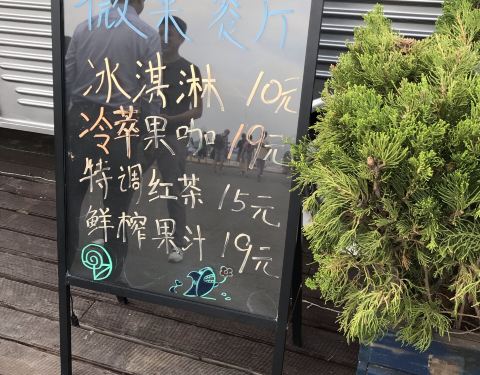 微果餐厅
冰淇淋 10元
冷萃果咖 19元
特调红茶 15元
鲜榨果汁 19元